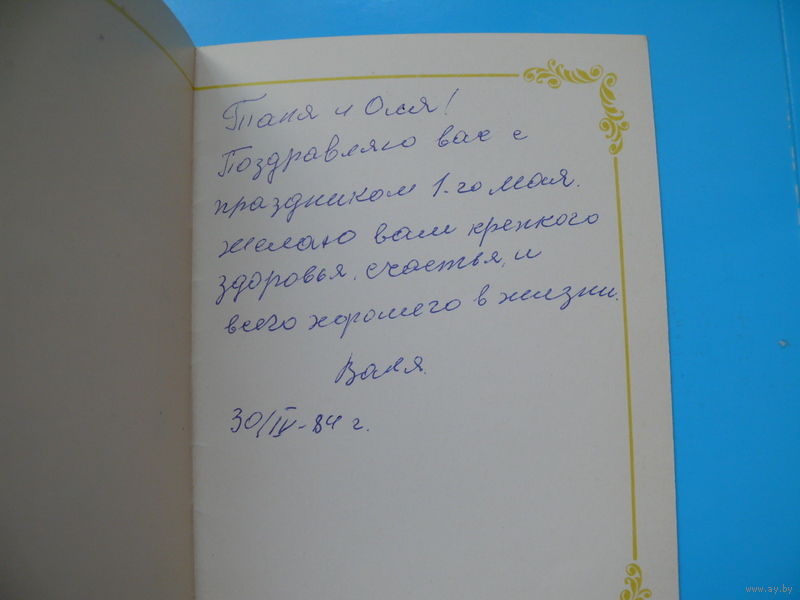 Таня и Оля!
Поздравляю вас с
праздником 1-го мая.
желаю вам крепкого
здоровья, счастья, и
всего хорошего в жизни.
Валя.
30/IV-84 г.
www.ay.by